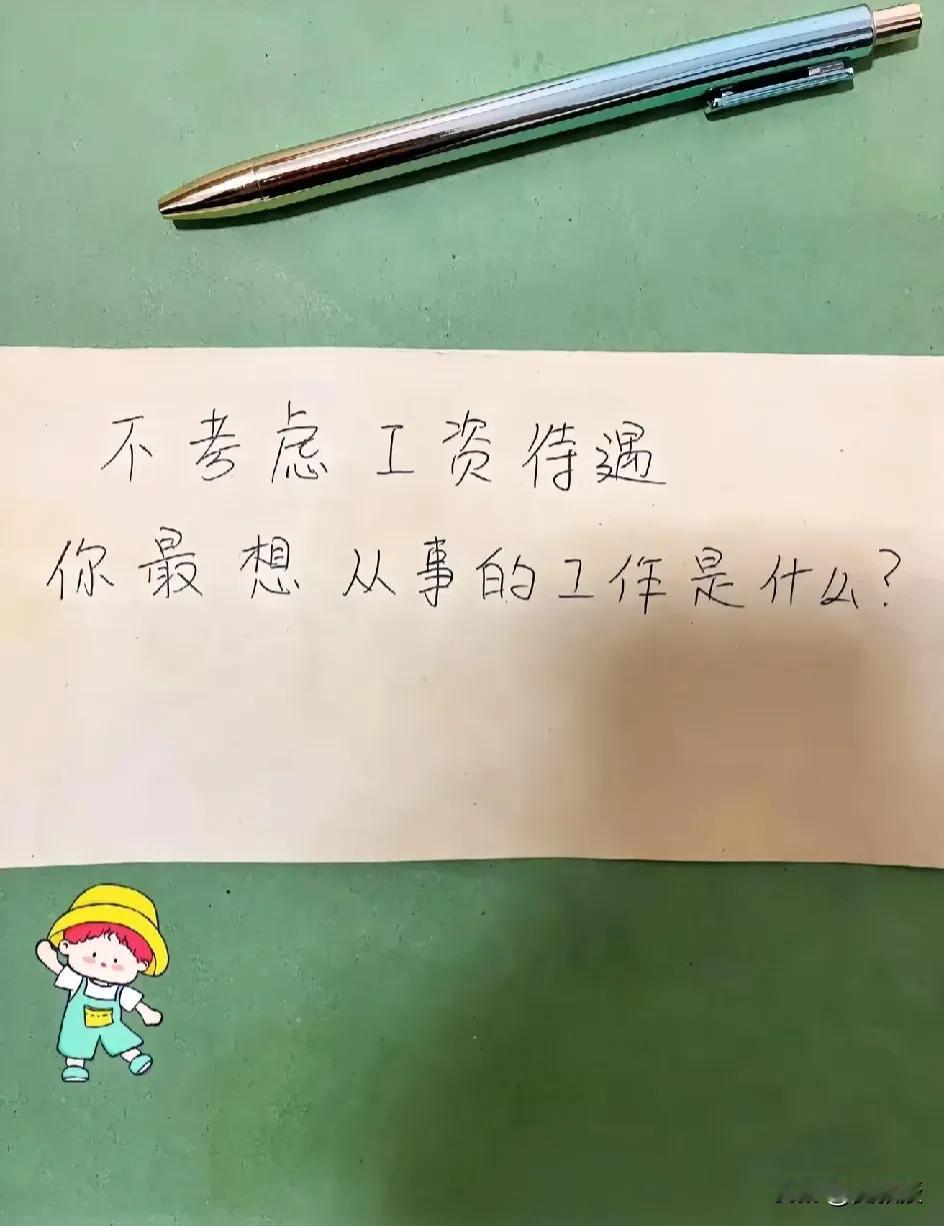 不考虑工资待遇
你最想从事的工作是什么?